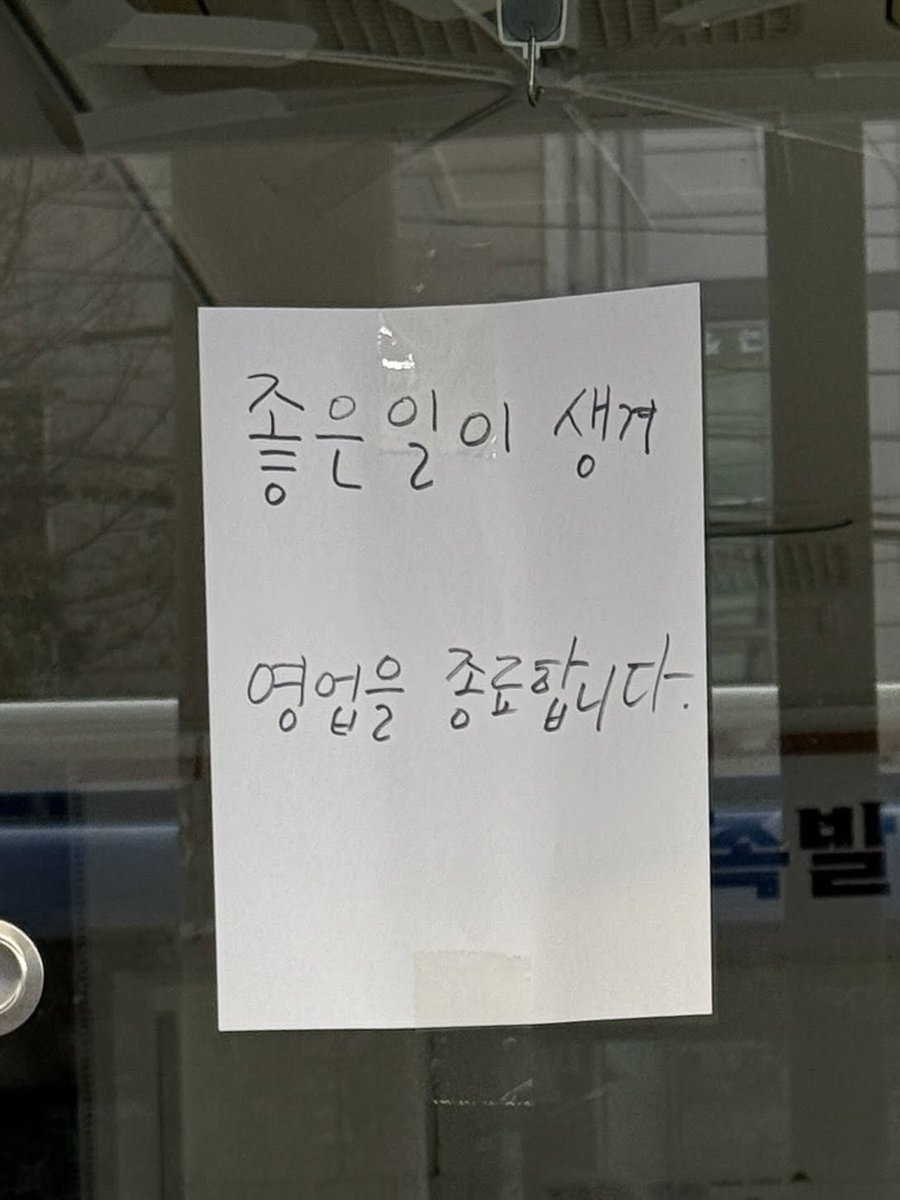 좋은일이 생겨
영업을 종료합니다.
족발